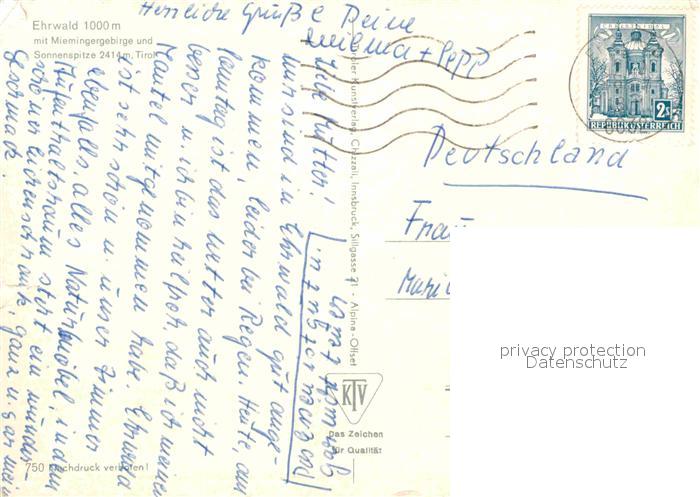 Ehrwald 1000 m
mit Miemingergebirge und
Sonnenspitze 2414 m, Tirol
Herzliche Grüße Deine
+ Sepp
Liebe Mutter!
wir sind in Ehrwald gut ange-
kommen, leider bei Regen. Heute, am
Samstag ist das Wetter auch nicht
besser u. ich bin heilfroh, daß ich meinen
Mantel mitgenommen habe. Ehrwald
ist sehr schön u. unser Zimmer
ebenfalls, alles Naturmöbel, in dem
Aufenthaltsraum steht ein wunder-
schöner Eichenschrank, ganz u. gar mein
Geschmack.
750 Nachdruck verboten!
Tiroler Kunstverlag Chizzali, Innsbruck, Sillgasse 21 - Alpina-Offset
KTV
Das Zeichen
für Qualität
CHRISTKINDL
2 S
REPUBLIK ÖSTERREICH
Deutschland
Frau
privacy protection
Datenschutz